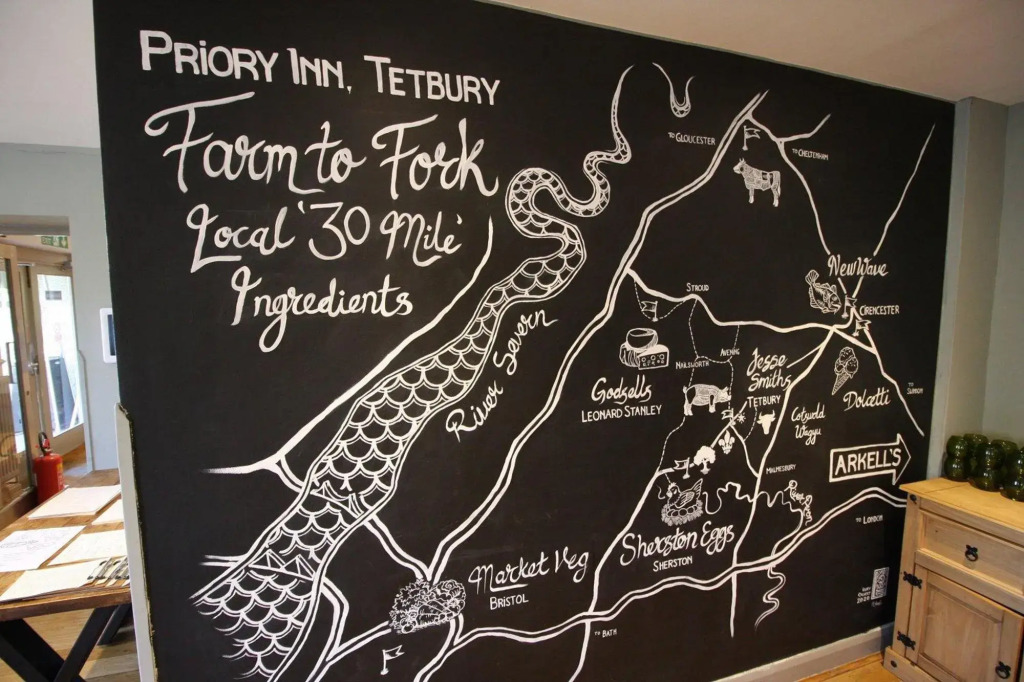 PRIORY INN, TETBURY
Farm to Fork
Local '30 Mile'
Ingredients
TO GLOUCESTER
TO CHELTENHAM
New Wave
CIRENCESTER
STROUD
River Severn
NAILSWORTH
AVENING
Godsells
LEONARD STANLEY
Jesse
Smiths
TETBURY
Cotswold
Wagyu
Dolcetti
TO
SWINDON
ARKELL'S
MALMESBURY
TO LONDON
Sherston Eggs
SHERSTON
Market Veg
BRISTOL
TO BATH
2020